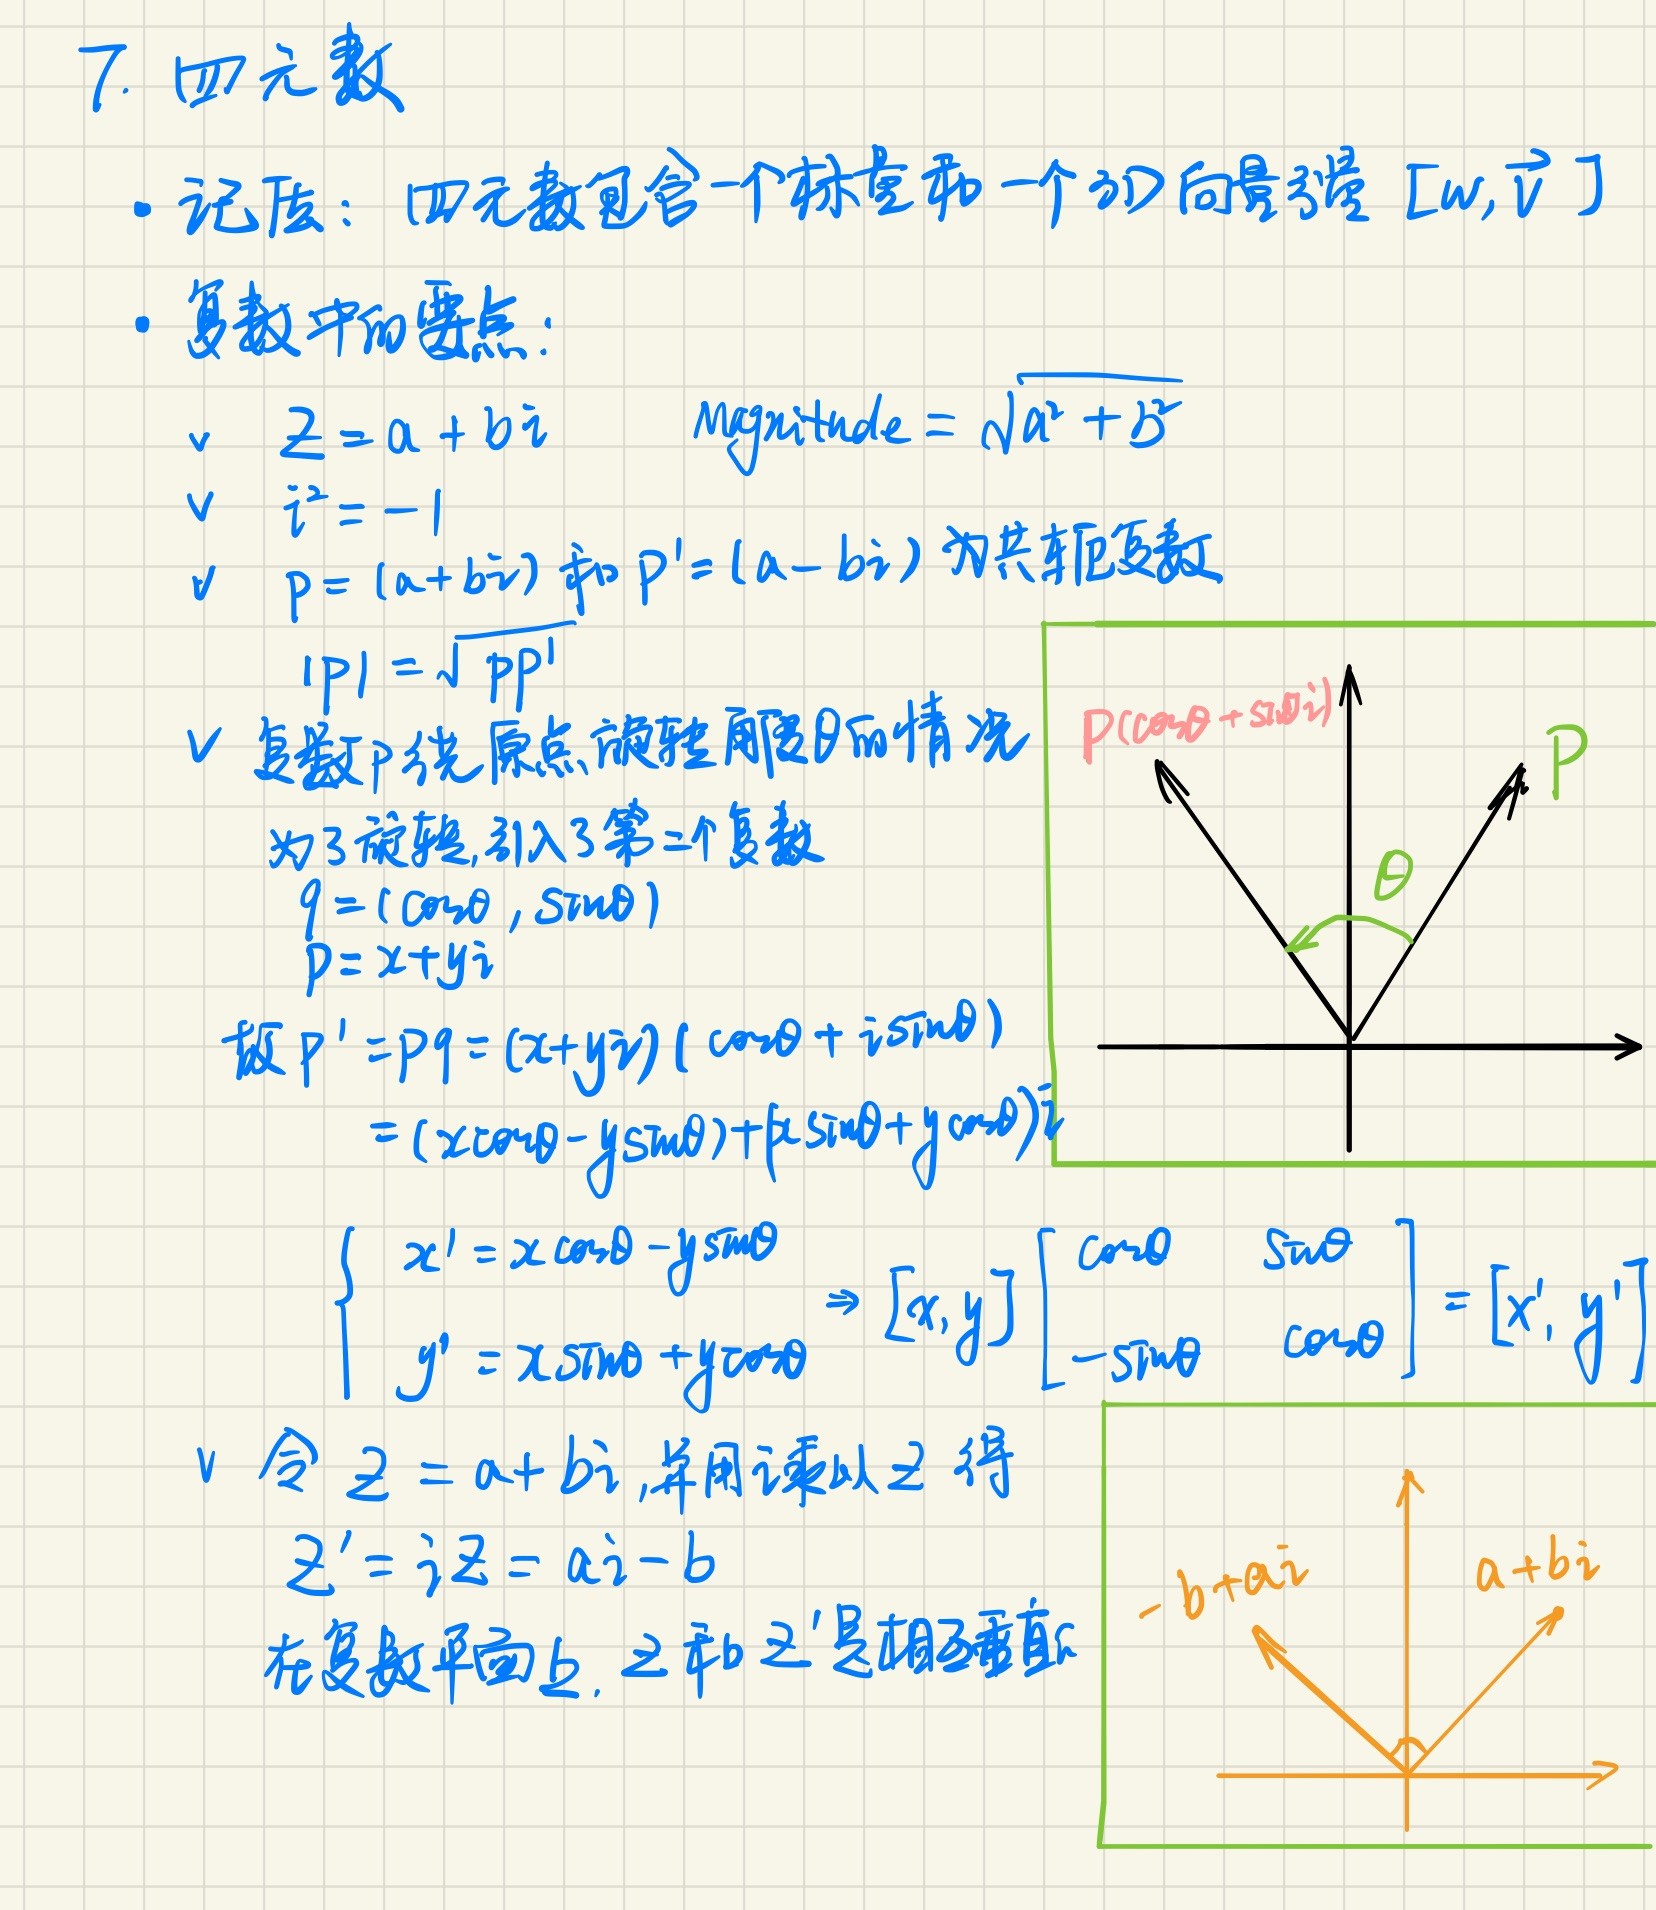 7. 四元数
• 记法: 四元数包含一个标量和一个3D向量分量 [w, v⃗]
• 复数中的要点:
∨ z = a + bi Magnitude = √(a² + b²)
∨ i² = -1
∨ p = (a+bi) 和 p' = (a-bi) 为共轭复数
|p| = √(pp')
∨ 复数p绕原点旋转角度θ的情况
为了旋转,引入了第二个复数
q = (cosθ, sinθ)
p = x+yi
故 p' = pq = (x+yi)(cosθ + isinθ)
= (xcosθ - ysinθ) + (xsinθ + ycosθ)i
p(cosθ + sinθi)
P
θ
{ x' = xcosθ - ysinθ
y' = xsinθ + ycosθ
⇒ [x, y] [cosθ sinθ
-sinθ cosθ] = [x', y']
∨ 令 z = a + bi, 并用i乘以z 得
z' = iz = ai - b
在复数平面上. z和z'是相互垂直的
-b+ai
a+bi